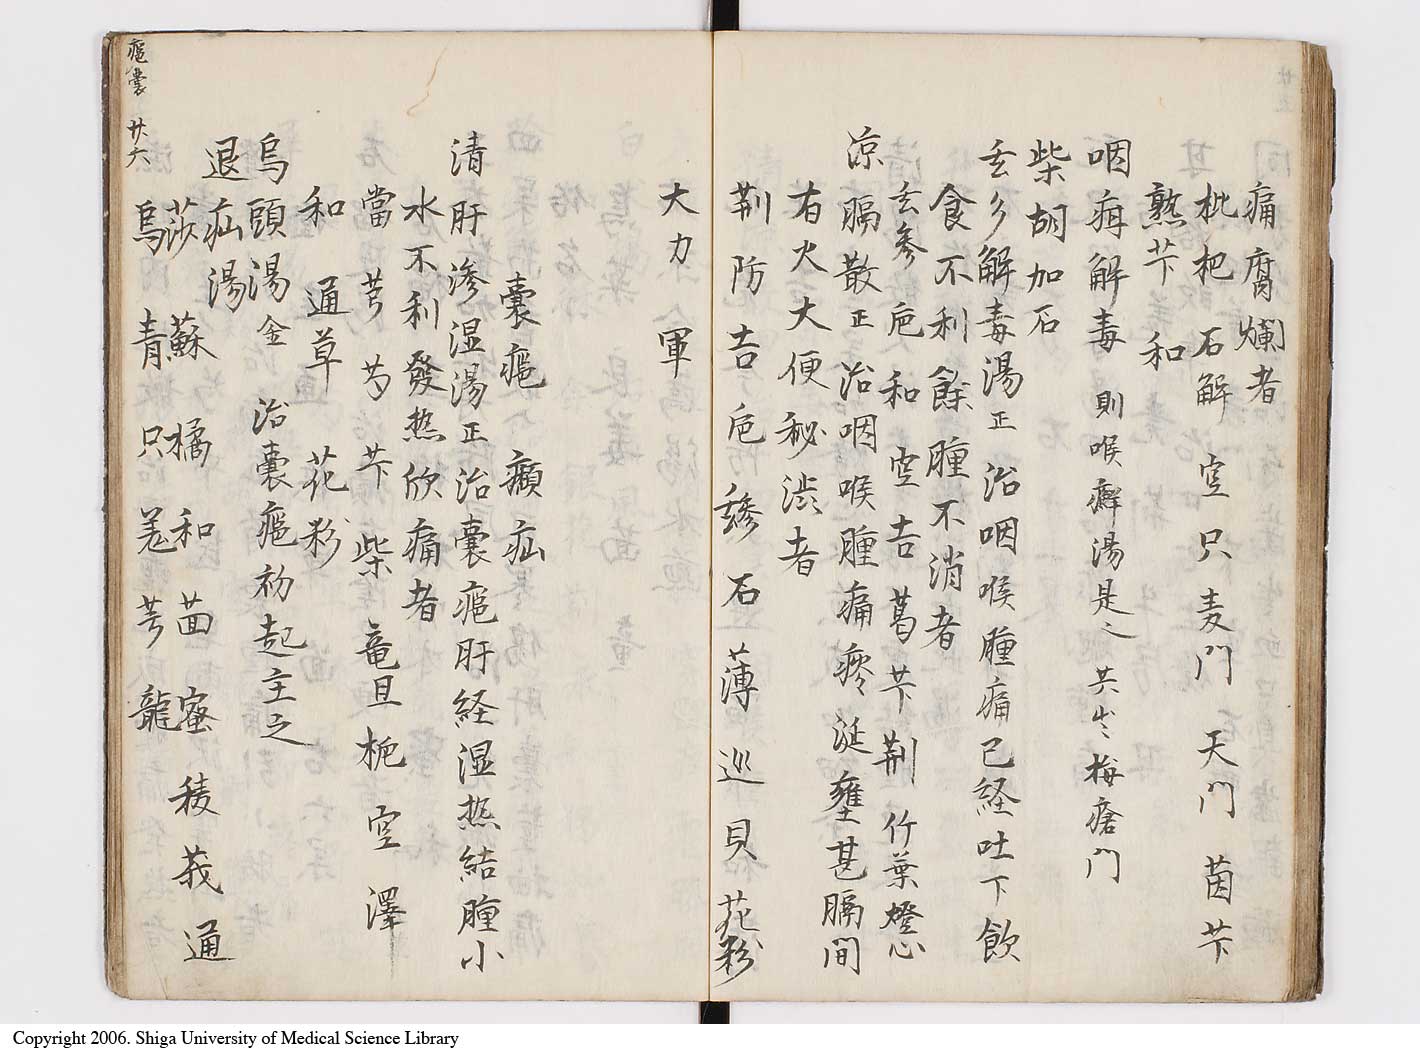 痛腐爛者
枇杷 石解 空 只 麦門 天門 茵 芐
熟芐 和
咽痛解毒 則喉癬湯是之 共出梅瘡門
柴胡加石
玄参解毒湯 正 治咽喉腫痛已経吐下飲
食不利餘腫不消者
玄参 巵 和 空 吉 葛 芐 荆 竹葉 燈心
凉膈散 正 治咽喉腫痛痰涎壅甚膈間
有火大便秘渋者
荆 防 吉 巵 翹 石 薄 巡 貝 花粉
大力 軍
囊癰 癩疝
清肝渗湿湯 正 治囊癰肝経湿熱結腫小
水不利發熱欣痛者
當 芎 芍 芐 柴 竜胆 栀 空 澤
和 通草 花粉
烏頭湯 金 治囊癰初起主之
退疝湯
莎 蘇 橘 和 茴 蜜 稜 莪 通
烏 青 只 羗 芎 龍
癰囊 廿六
Copyright 2006. Shiga University of Medical Science Library